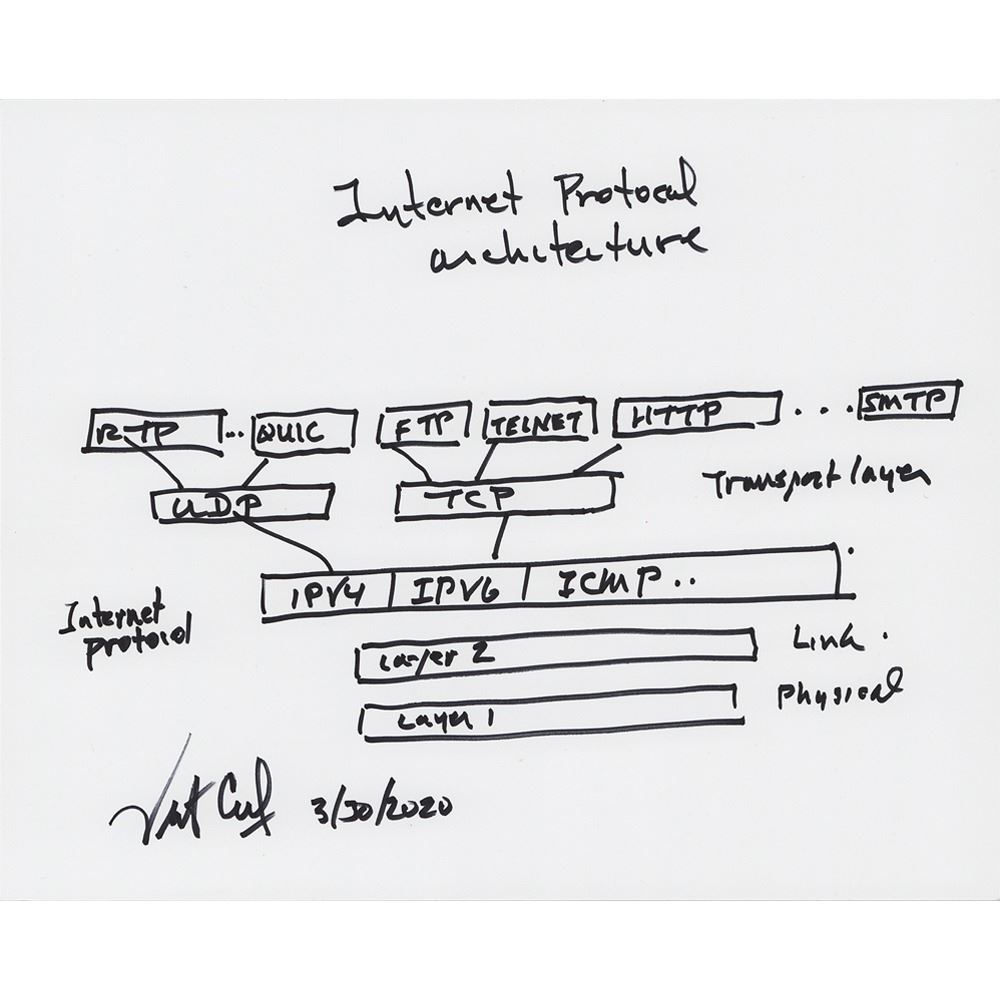 Internet Protocol
architecture
RTP ... QUIC FTP TELNET HTTP ... SMTP
UDP TCP Transport layer
IPV4 IPV6 ICMP ..
Internet
protocol
Layer 2 Link
Layer 1 Physical
Vint Cerf 3/30/2020